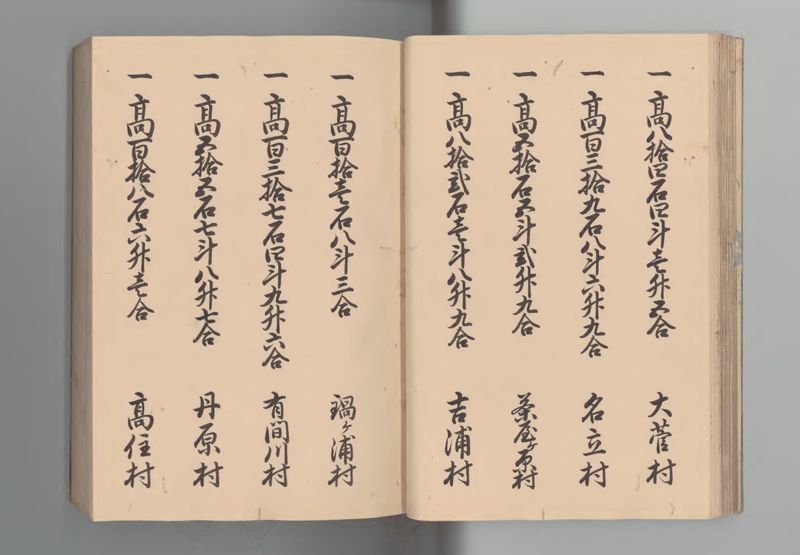 一 高八拾四石四斗壱升五合 大菅村
一 高百三拾九石八斗六升九合 名立村
一 高五拾石五斗弐升九合 茶屋ヶ原村
一 高八拾弐石壱斗八升九合 吉浦村
一 高百拾壱石八斗三合 鍋ヶ浦村
一 高百三拾七石四斗九升六合 有間川村
一 高五拾五石七斗八升七合 丹原村
一 高百拾八石六升壱合 高住村